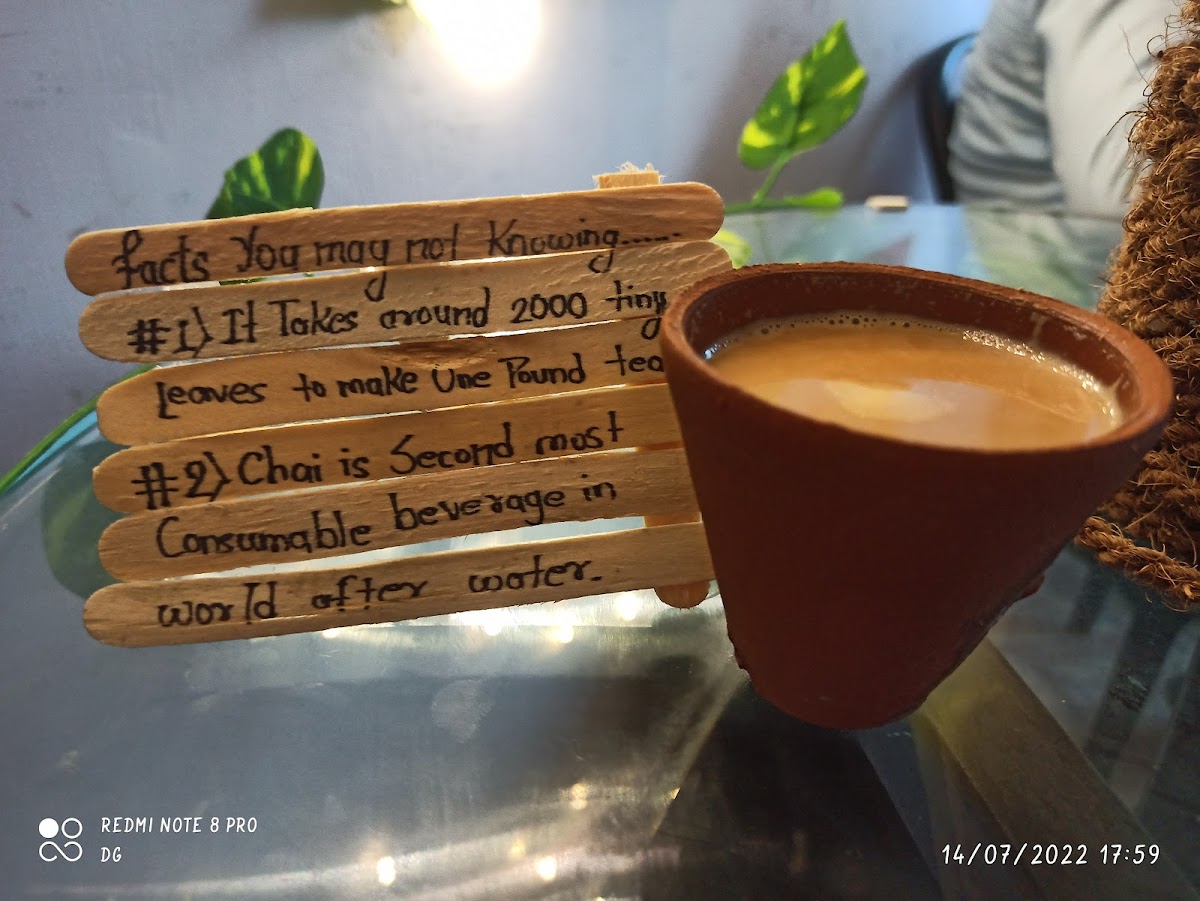 facts You may not Knowing......
#1) It Takes around 2000 tiny
Leaves to make One Pound tea
#2) Chai is Second most
Consumable beverage in
world after water.
REDMI NOTE 8 PRO
DG
14/07/2022 17:59